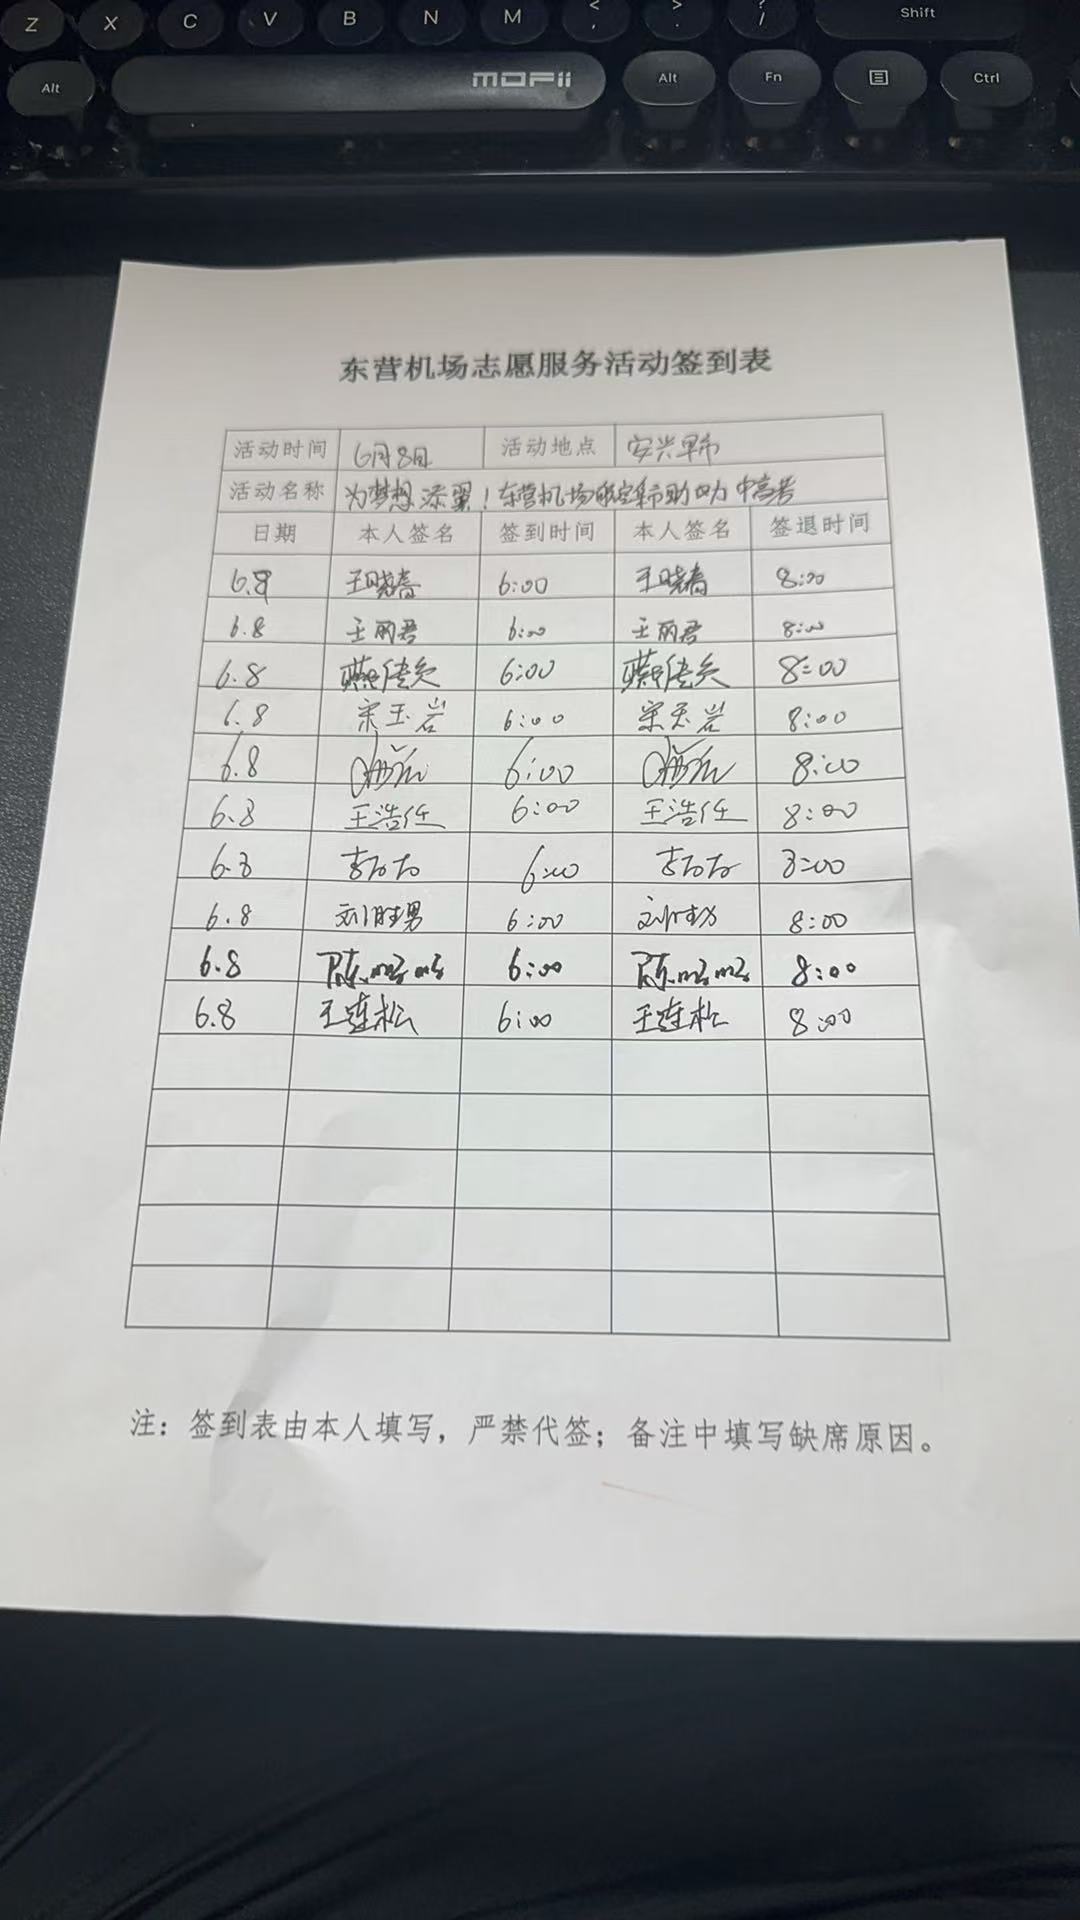 Z X C V B N M < , > . ? / Shift
Alt MOFii Alt Fn Ctrl
东营机场志愿服务活动签到表
活动时间 6月8日 活动地点 安兴早市
活动名称 为梦想添翼!东营机场航空集市助力中高考
日期 本人签名 签到时间 本人签名 签退时间
6.8 王晓春 6:00 王晓春 8:00
6.8 王丽君 6:00 王丽君 8:00
6.8 6:00 8:00
6.8 宋玉岩 6:00 宋玉岩 8:00
6.8 6:00 8:00
6.8 王浩任 6:00 王浩任 8:00
6.8 6:00 8:00
6.8 刘胜男 6:00 刘胜男 8:00
6.8 6:00 8:00
6.8 王连松 6:00 王连松 8:00
注：签到表由本人填写，严禁代签；备注中填写缺席原因。